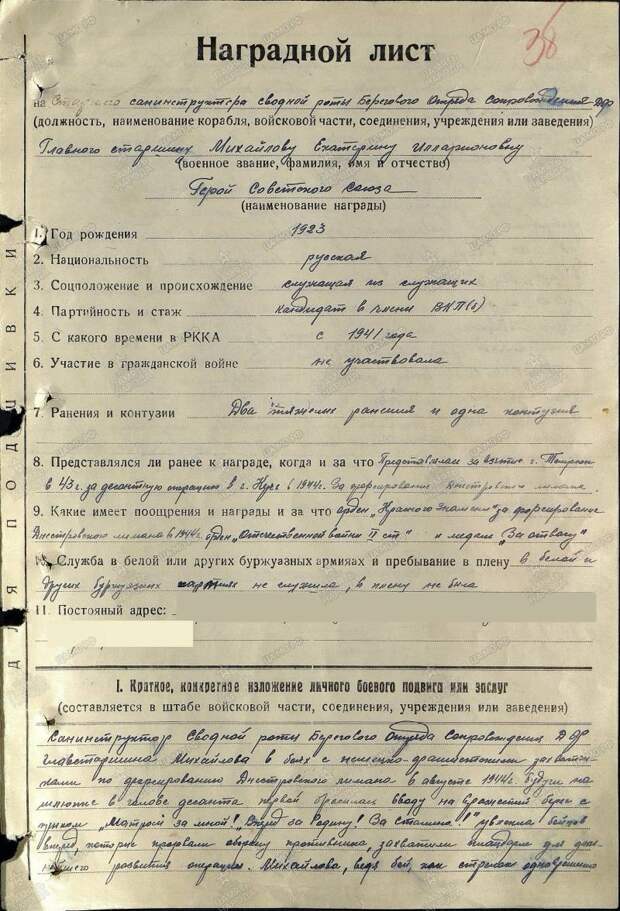 38
Наградной лист
на Старшего санинструктора сводной роты Берегового Отряда Сопровождения ДФ
(должность, наименование корабля, войсковой части, соединения, учреждения или заведения)
Главного старшину Михайлову Екатерину Илларионовну
(военное звание, фамилия, имя и отчество)
Герой Советского Союза
(наименование награды)
1. Год рождения 1923
2. Национальность русская
3. Соцположение и происхождение служащая из служащих
4. Партийность и стаж кандидат в члены ВКП(б)
5. С какого времени в РККА с 1941 года
6. Участие в гражданской войне не участвовала
7. Ранения и контузии Два тяжелых ранения и одна контузия
8. Представлялся ли ранее к награде, когда и за что Представлялась за взятие г. Темрюк
в 43 г. за десантную операцию в г. Керч в 1944г. За форсирование Днестровского лимана
9. Какие имеет поощрения и награды и за что орден „Красного Знамени" за форсирование
Днестровского лимана в 1944г. орден „Отечественной войны II ст" и медаль „За отвагу"
10. Служба в белой или других буржуазных армиях и пребывание в плену в белой и
других буржуазных армиях не служила, в плену не была
11. Постояный адрес:
ДЛЯ ПОДШИВКИ
I. Краткое, конкретное изложение личного боевого подвига или заслуг
(составляется в штабе войсковой части, соединения, учреждения или заведения)
Санинструктор Сводной роты Берегового Отряда Сопровождения ДФ
главстаршина Михайлова в боях с немецко-фашистскими захватчи-
ками по форсированию Днестровского лимана в августе 1944г. будучи на
шлюпке в голове десанта первой бросилась в воду на вражеский берег с
криком „Матросы за мной! Вперед за Родину! За Сталина!" увлекла бойцов
вперед, которые прорвали оборону противника, захватили плацдарм для даль-
нейшего развития операции. Михайлова, ведя бой, как стрелок одновременно